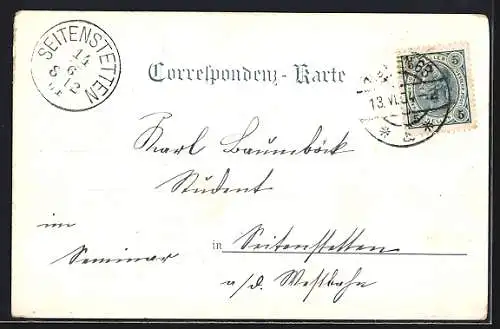 SEITENSTETTEN
14
6
Correspondenz-Karte
13.VI.
5
5
Karl Baumböck
Student
im
Seminar
in Seitenstetten
a/d. Westbahn